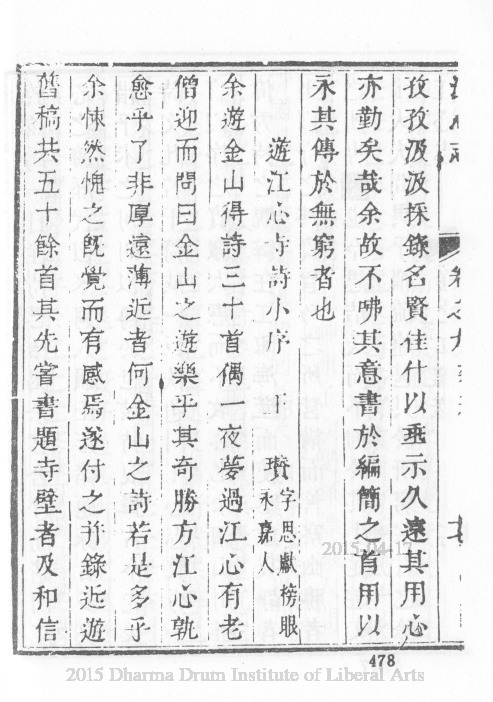 江心志 卷之九
孜孜汲汲採錄名賢佳什以垂示久遠其用心
亦勤矣哉余故不咈其意書於編簡之首用以
永其傳於無窮者也
遊江心寺詩小序 王瓚字思獻榜眼永嘉人
余遊金山得詩三十首偶一夜夢過江心有老
僧迎而問曰金山之遊樂乎其奇勝方江心孰
愈乎了非厚遠薄近者何金山之詩若是多乎
余悚然愧之旣覺而有感焉遂付之幷錄近遊
舊稿共五十餘首其先嘗書題寺壁者及和信
2015-04-17
478
2015 Dharma Drum Institute of Liberal Arts